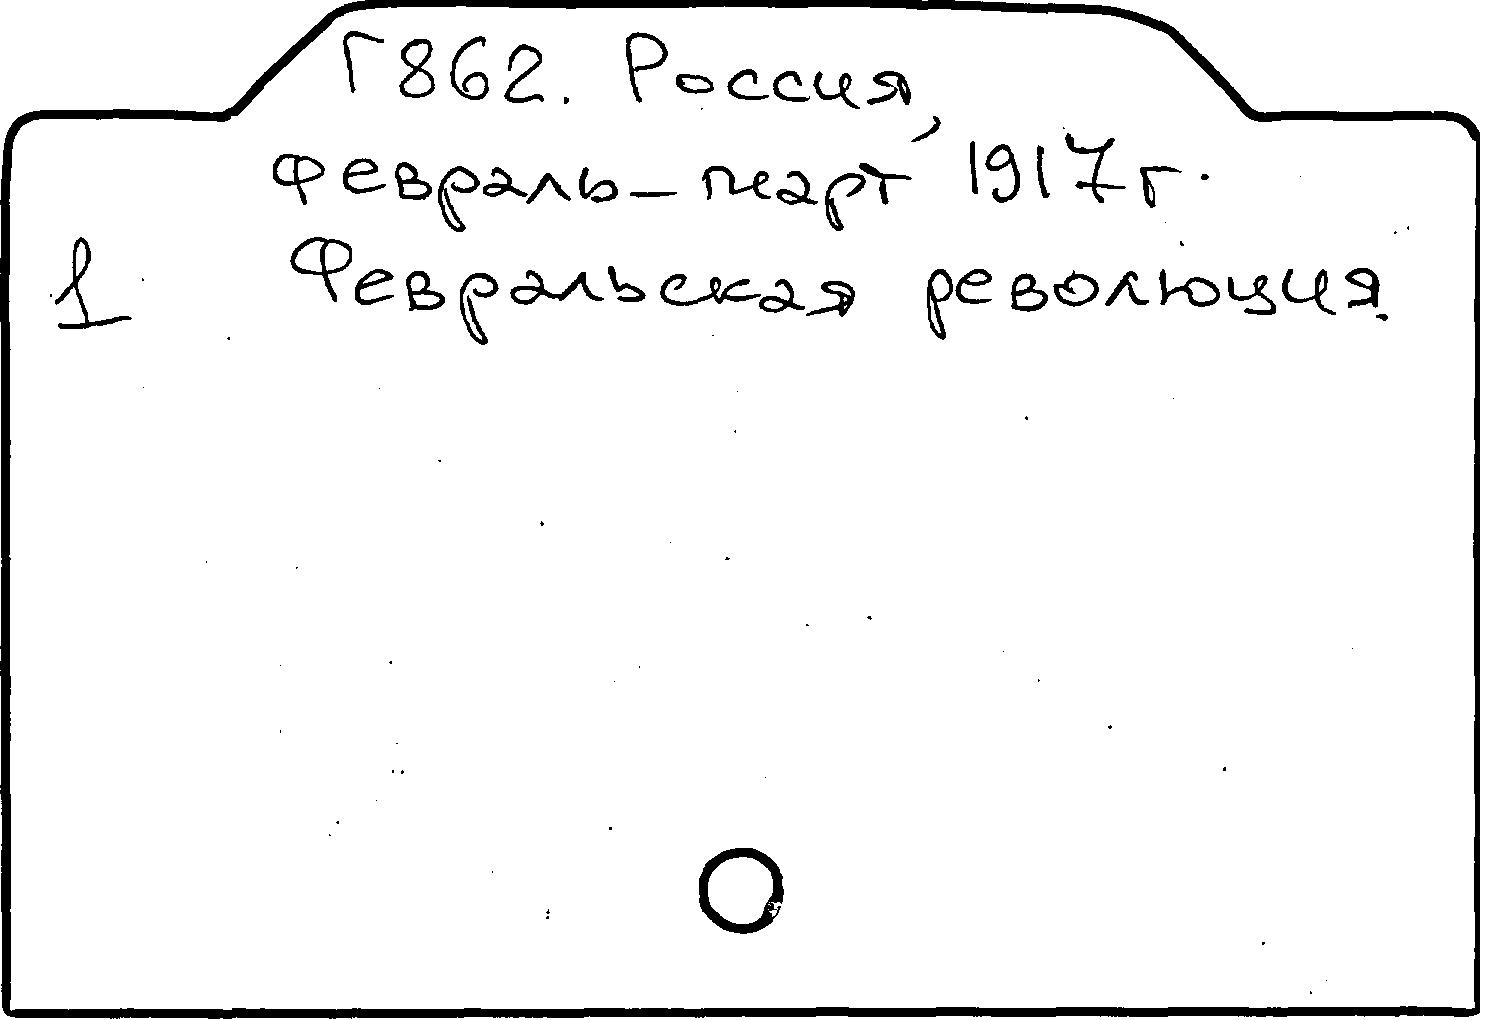 Г862. Россия,
февраль-март 1917 г.
1 Февральская революция.